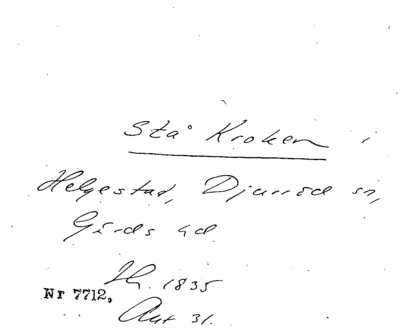 Stå Kroken i
Helgestad, Djurröd sn,
Gärds hd
1835
Nr 7712.
Akt 31.